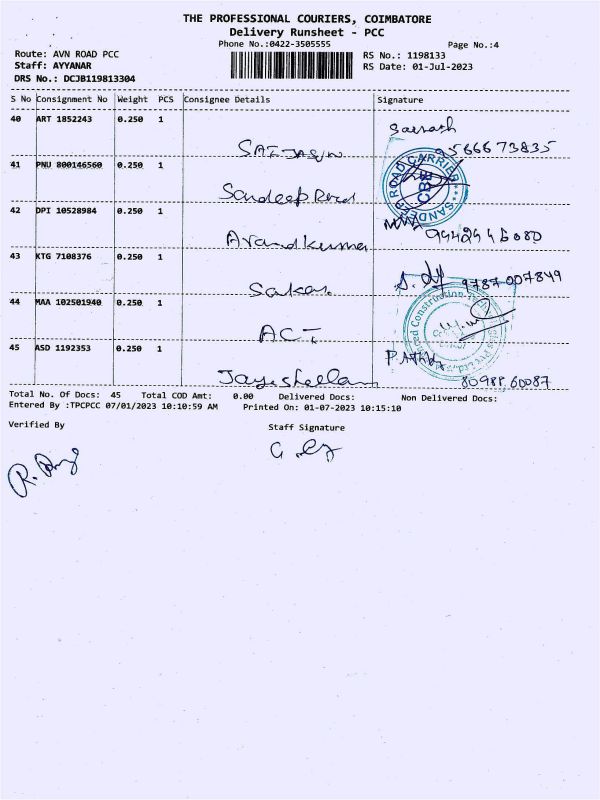 THE PROFESSIONAL COURIERS, COIMBATORE
Delivery Runsheet - PCC
Phone No.:0422-3505555
Page No.:4
Route: AVN ROAD PCC
Staff: AYYANAR
DRS No.: DCJB119813304
RS No.: 1198133
RS Date: 01-Jul-2023
S No Consignment No Weight PCS Consignee Details Signature
40 ART 1852243 0.250 1
9566673835
41 PNU 800146560 0.250 1 Sandeep Road
SANDEEP ROAD CARRIER CBE
42 DPI 10528984 0.250 1 Anandkumar
43 KTG 7108376 0.250 1 9787007849
44 MAA 102501940 0.250 1 ACT
45 ASD 1192353 0.250 1
8098860087
Total No. Of Docs: 45 Total COD Amt: 0.00 Delivered Docs: Non Delivered Docs:
Entered By :TPCPCC 07/01/2023 10:10:59 AM Printed On: 01-07-2023 10:15:10
Verified By Staff Signature